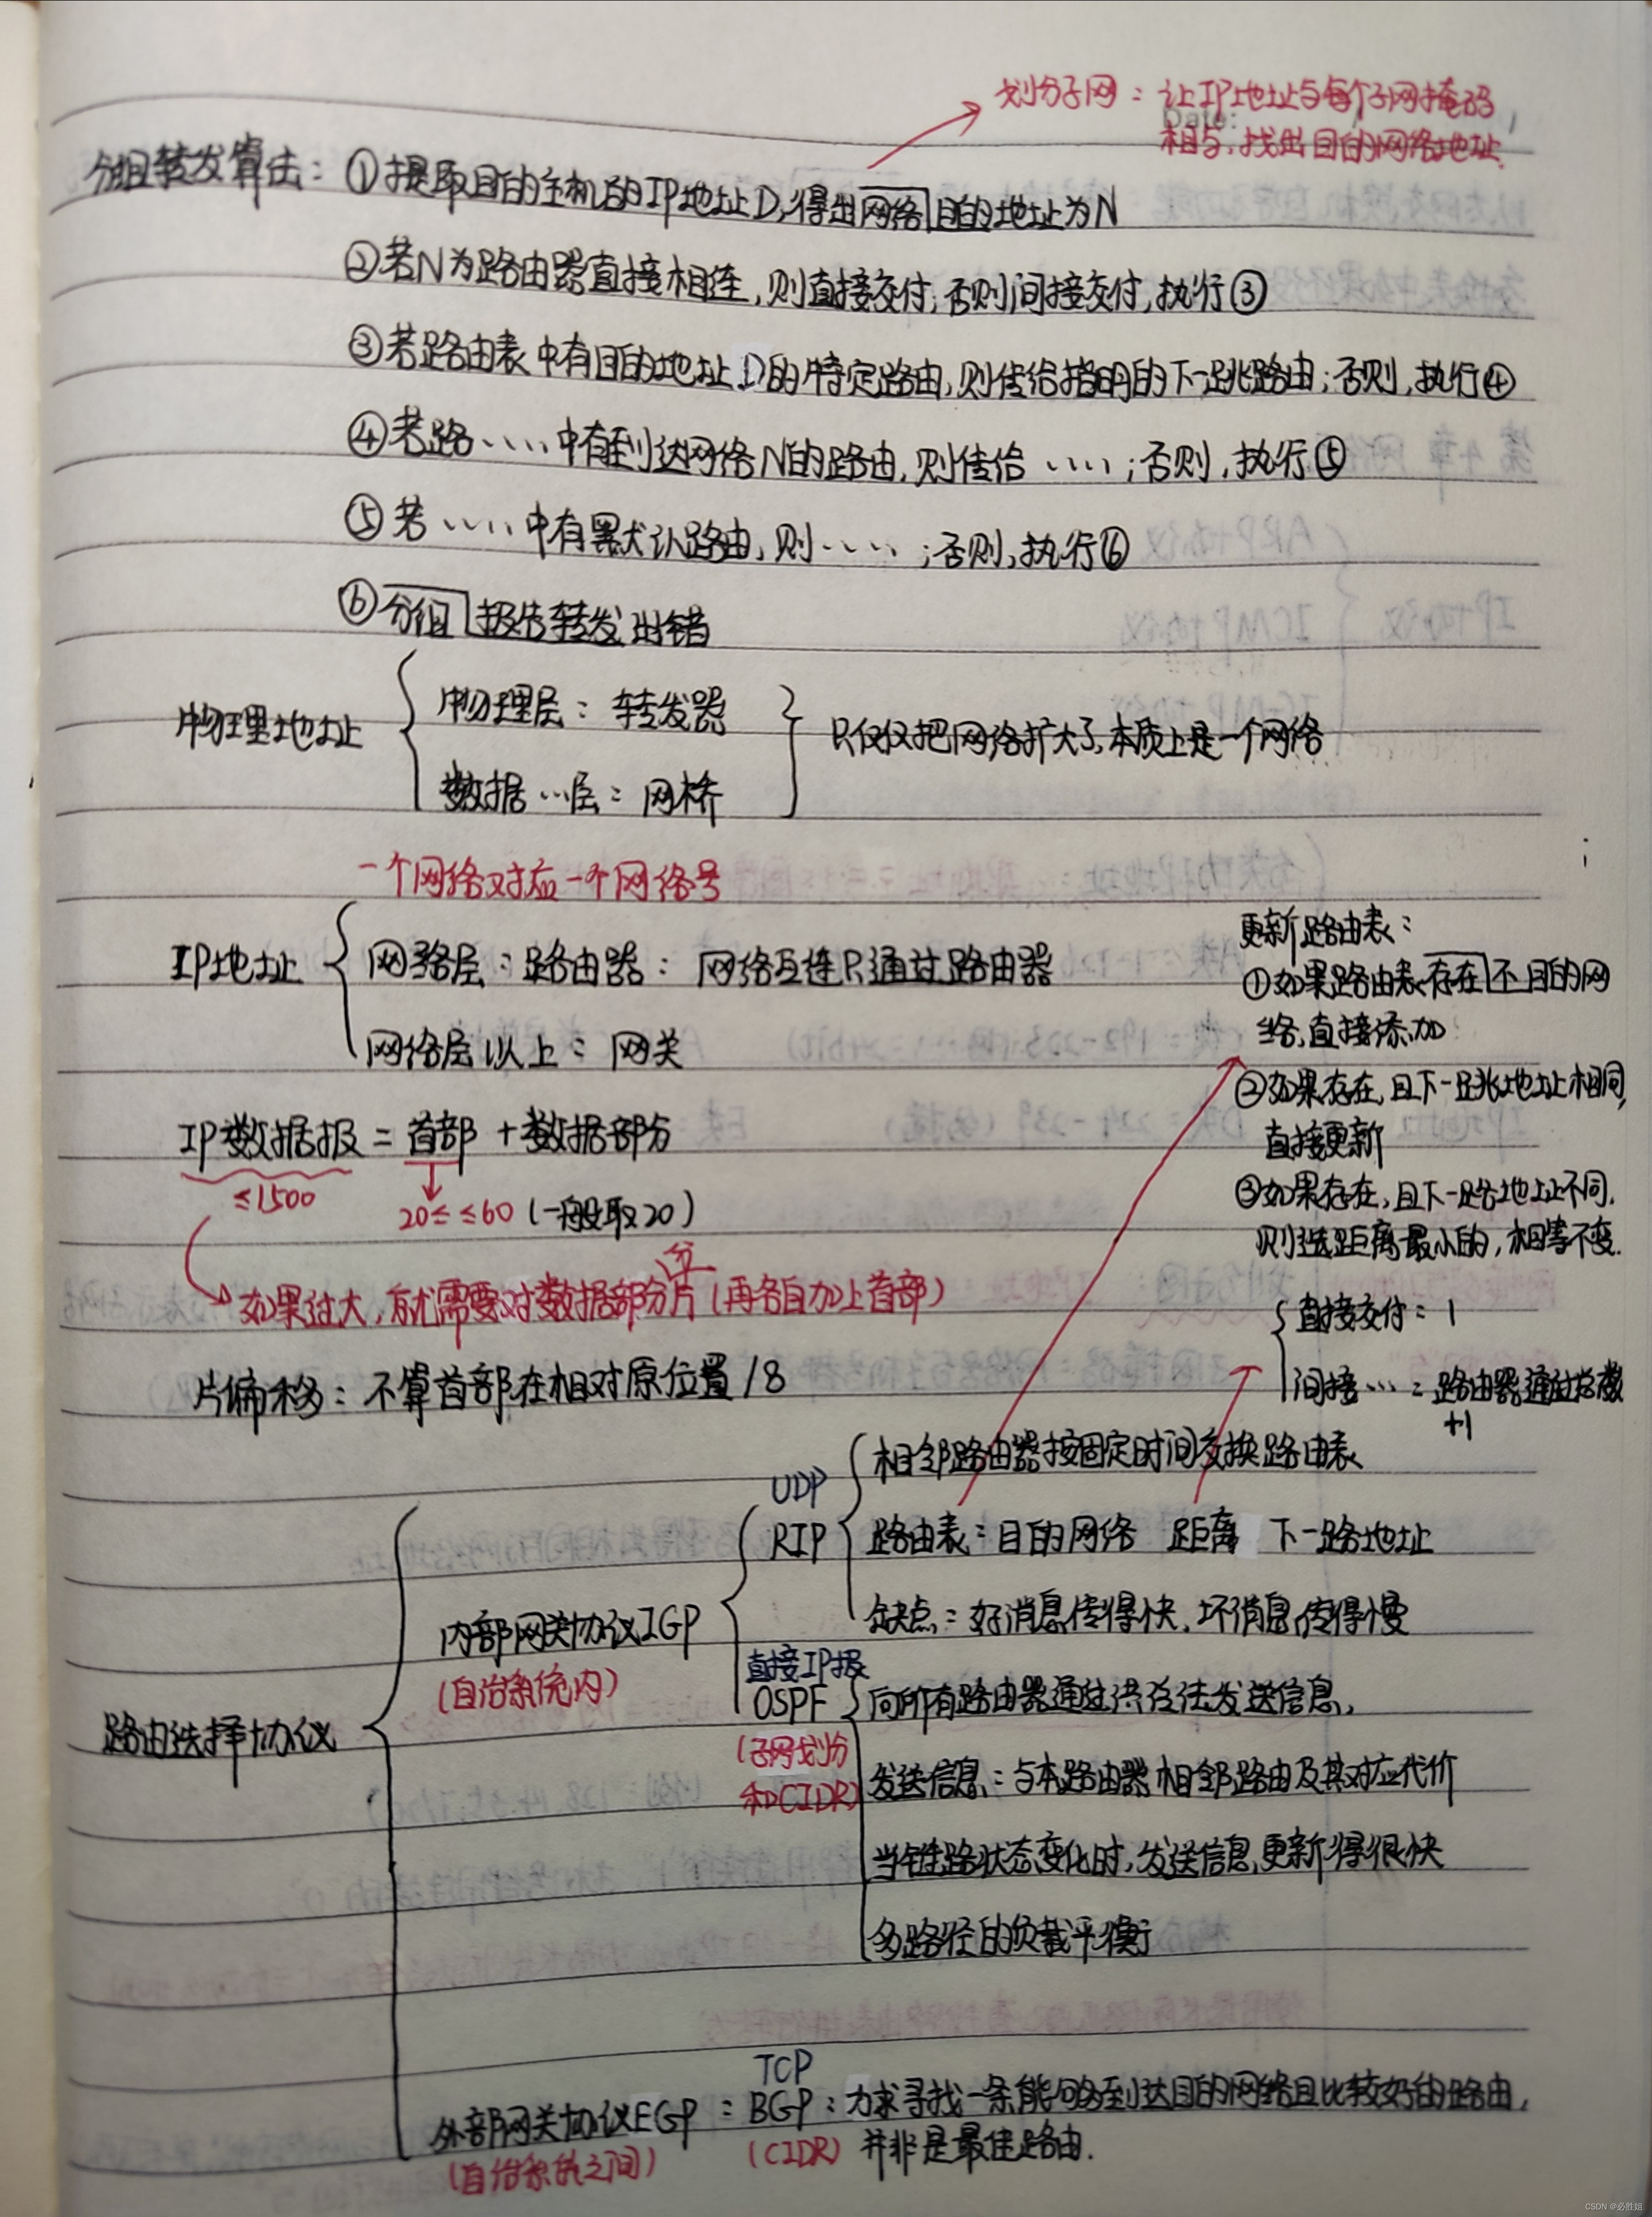 划分子网：让IP地址与每个子网掩码
Date:
相与,找出目的网络地址.
分组转发算法：①提取目的主机的IP地址D,得出网络目的地址为N
②若N为路由器直接相连,则直接交付,否则间接交付,执行③
③若路由表中有目的地址D的特定路由,则传给指明的下一跳路由;否则,执行④
④若路····中有到达网络N的路由,则传给····;否则,执行⑤
⑤若····中有默认路由,则····;否则,执行⑥
⑥分组报告转发出错
物理地址
物理层：转发器
数据…层：网桥
只仅仅把网络扩大了,本质上是一个网络
一个网络对应一个网络号
IP地址
网络层：路由器：网络互连只通过路由器
网络层以上：网关
IP数据报=首部+数据部分
≤1500
20≤ ≤60(一般取20)
分
如果过大,就需要对数据部分片(再各自加上首部)
片偏移：不算首部在相对原位置/8
更新路由表：
①如果路由表存在不目的网
络,直接添加
②如果存在,且下一跳地址相同,
直接更新
③如果存在,且下一路地址不同.
则选距离最小的,相等不变.
直接交付：1
间接…：路由器通过总数
+1
路由选择协议
内部网关协议IGP
(自治系统内)
UDP
RIP
相邻路由器按固定时间交换路由表
路由表：目的网络 距离 下一路地址
缺点：好消息传得快,坏消息传得慢
直接IP报
OSPF
(子网划分
和CIDR)
向所有路由器通过洪泛法发送信息,
发送信息：与本路由器相邻路由及其对应代价
当链路状态变化时,发送信息,更新得很快
多路径的负载平衡
外部网关协议EGP：
(自治系统之间)
TCP
BGP：力求寻找一条能够到达目的网络且比较好的路由,
(CIDR) 并非是最佳路由.
CSDN @必胜姐